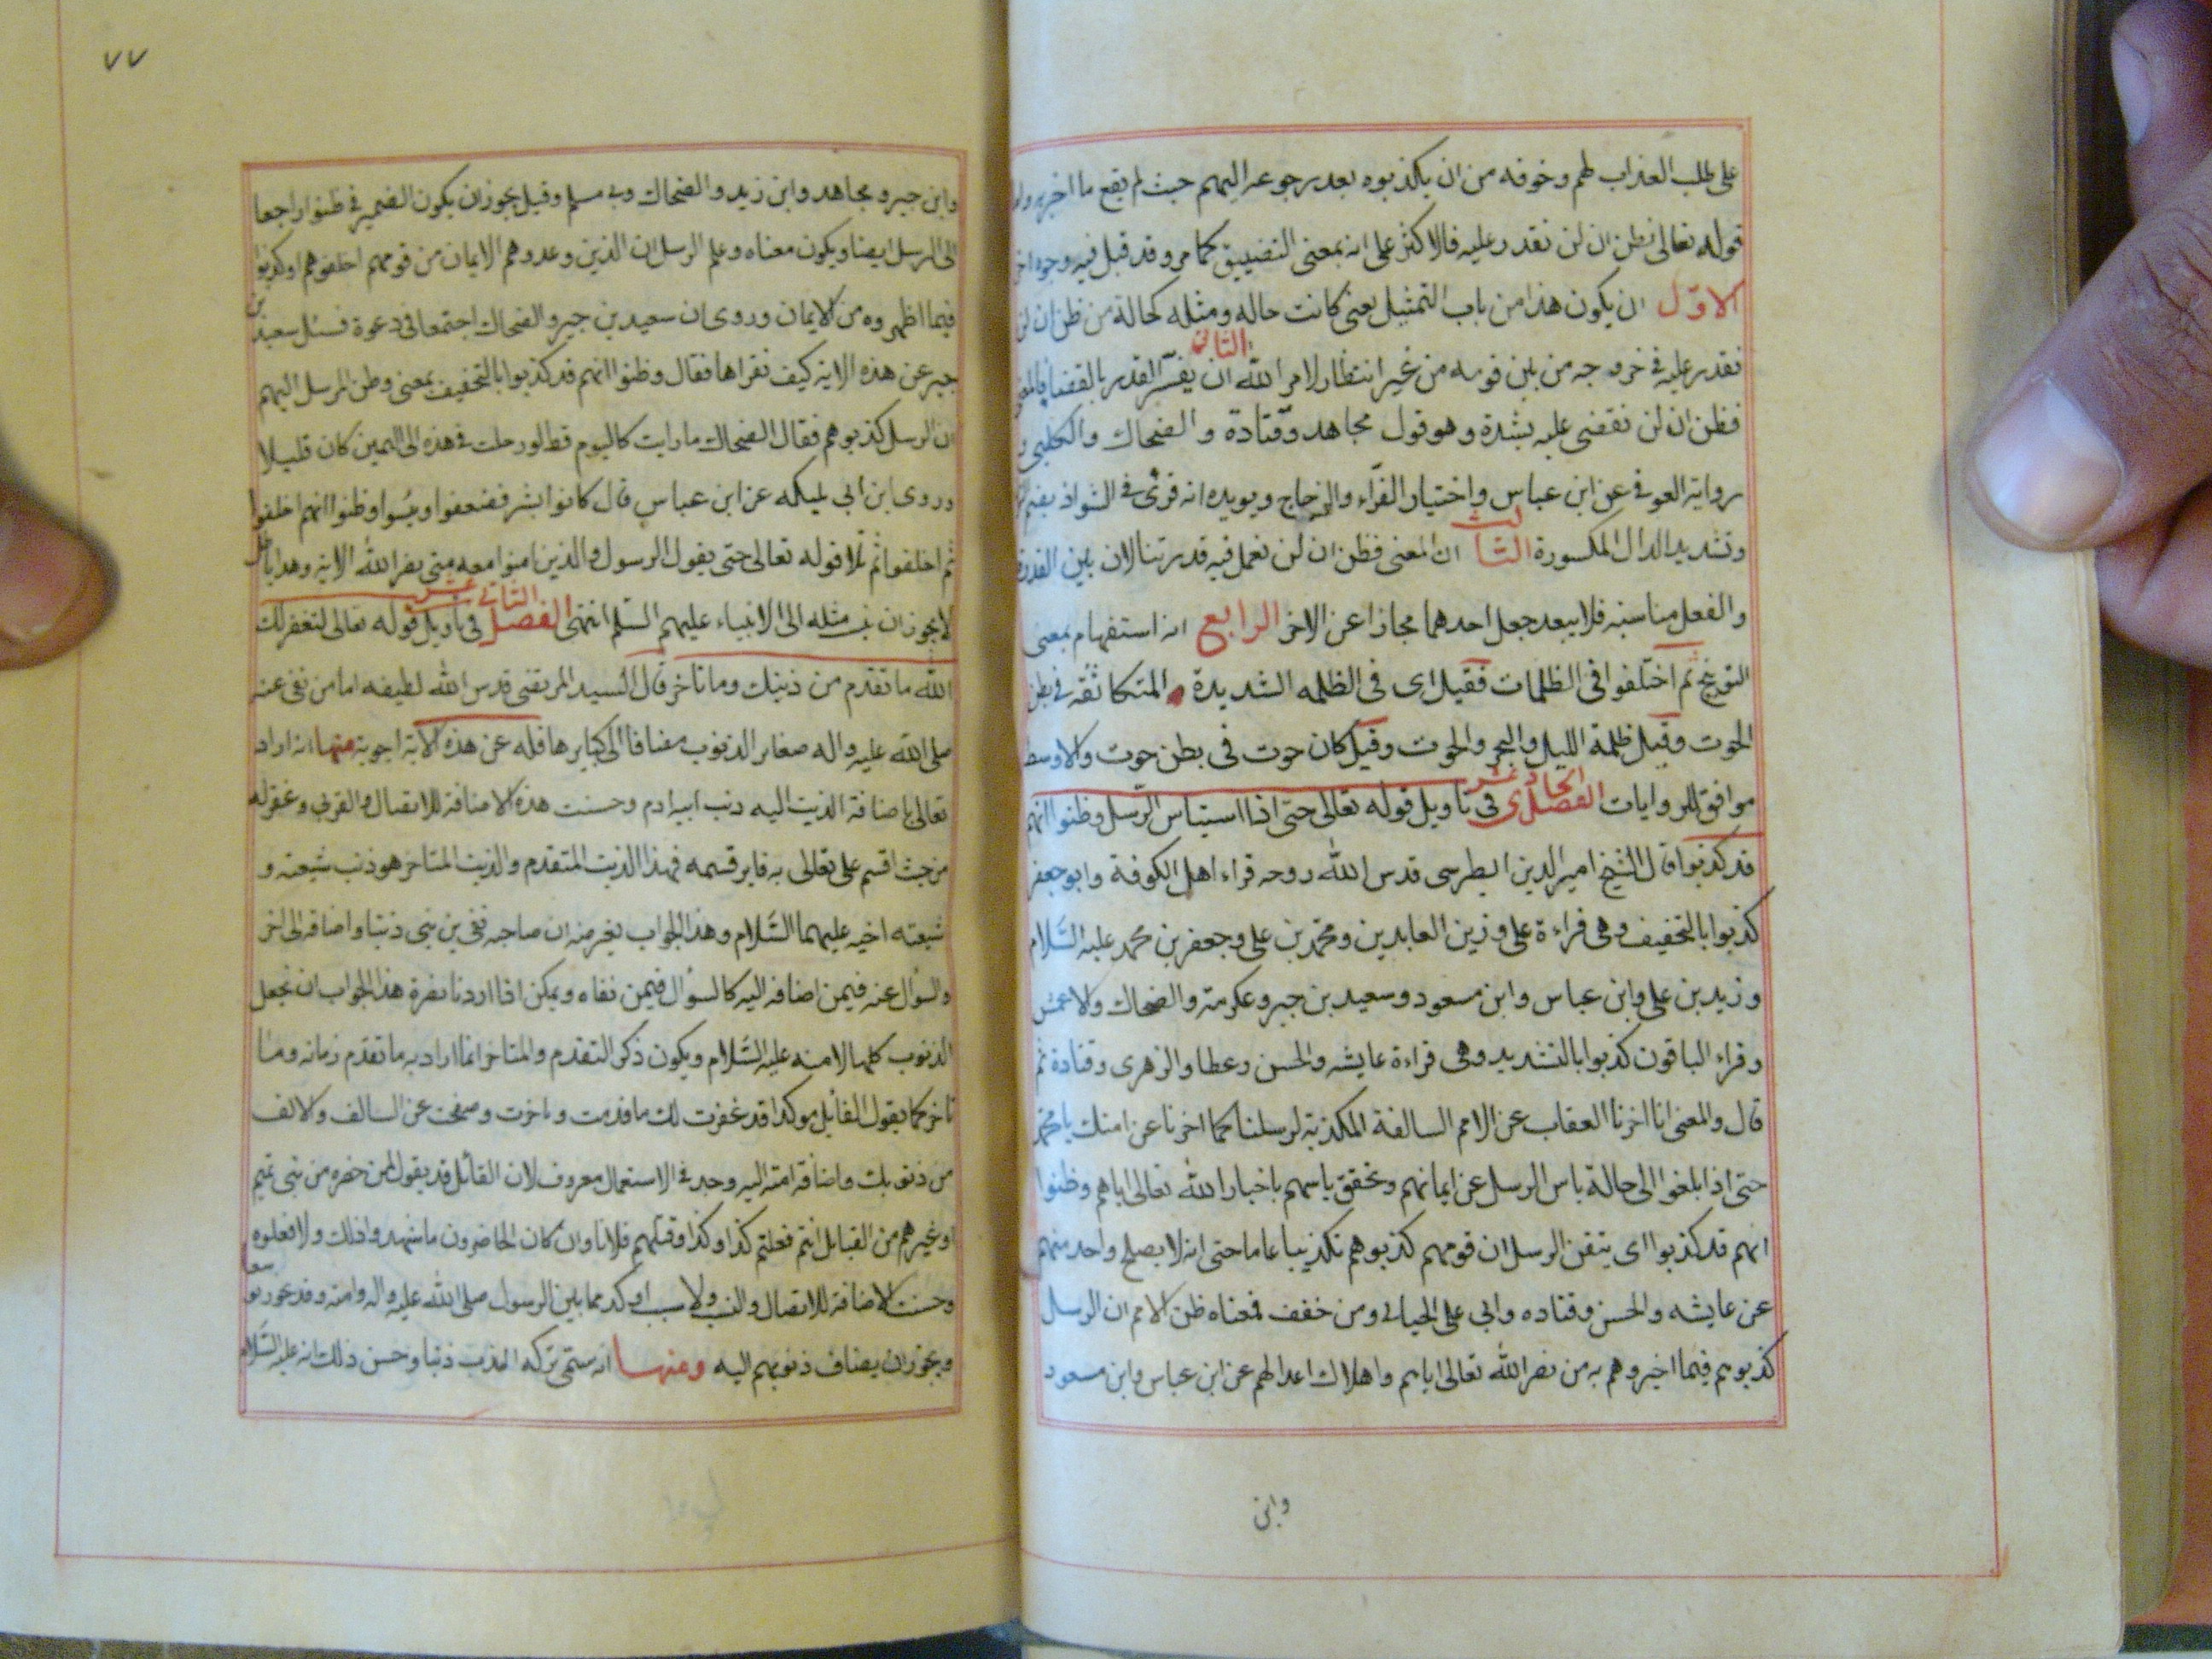 على طلب العذاب لهم وخوفه من ان يكذبوه بعد رجوعه اليهم حيث لم يقع ما اخبر به
قوله تعالى فظن ان لن نقدر عليه فالاكثر على انه بمعنى التضييق كما مر وقد قيل فيه وجوه
الاول ان يكون هذا من باب التمثيل يعنى كانت حاله ومثله كحالة من ظن ان لن
نقدر عليه في خروجه من بين قومه من غير انتظار لامر الله الثانى ان يفسر القدر بالقضا فالمعنى
فظن ان لن نقضى عليه بشدة وهو قول مجاهد وقتادة و الضحاك والكلبي و
رواية العوفي عن ابن عباس واختيار الفراء والزجاج ويويده انه قرئ في الشواذ بضم
وتشديد الدال المكسورة الثالث ان المعنى فظن ان لن نعمل فيه قدرتنا لان بين القدرة
والفعل مناسبة فلا يبعد جعل احدهما مجازا عن الاخر الرابع انه استفهام بمعنى
التوبيخ ثم اختلفوا في الظلمات فقيل اى في الظلمه الشديدة المتكاثفه في بطن
الحوت وقيل ظلمة الليل والبحر والحوت وقيل كان حوت في بطن حوت والاوسط
موافق للروايات الفصل الحادى عشر في تاويل قوله تعالى حتى اذا استيئاس الرسل وظنوا انهم
قد كذبوا قال الشيخ امير الدين الطبرسى قدس الله روحه قراء اهل الكوفة وابوجعفر
كذبوا بالتخفيف وهى قراءة على وزين العابدين ومحمد بن على وجعفر بن محمد عليه السلام
وزيد بن على وابن عباس وابن مسعود وسعيد بن جبير وعكرمة والضحاك والاعمش
وقراء الباقون كذبوا بالتشديد وهى قراءة عايشه والحسن وعطا والزهرى وقتادة ثم
قال والمعنى انا اخرنا العقاب عن الامم السالفة المكذبة لرسلنا كما اخرنا عن امتك يا محمد
حتى اذا بلغوا الى حالة ياس الرسل عن ايمانهم وتحقق ياسهم باخبار الله تعالى اياهم وظنوا
انهم قد كذبوا اى يتقن الرسل ان قومهم كذبوهم تكذيبا عاما حتى انه لا يصلح واحد منهم
عن عايشه والحسن وقتاده وابي على الجبائى ومن خفف فمعناه ظن الامم ان الرسل
كذبوهم فيما اخبروهم به من نصر الله تعالى اياهم واهلاك اعدائهم عن ابن عباس وابن مسعود
وابن
٧٧
وابن جبير ومجاهد وابن زيد والضحاك وبى مسلم وقيل يجوز ان يكون الضمير في ظنوا راجعا
الى الرسل ايضا ويكون معناه وعلم الرسل ان الذين وعدوهم الايمان من قومهم اخلفوهم او كذبوا
فيما اظهروه من الايمان وروى ان سعيد بن جبير والضحاك اجتمعا في دعوة فسئل سعيد بن
جبير عن هذه الاية كيف نقراها فقال وظنوا انهم قد كذبوا بالتخفيف بمعنى وظن المرسل اليهم
ان الرسل كذبوهم فقال الضحاك ما رايت كاليوم قط لو رحلت في هذه الى اليمن كان قليلا
وروى ابن ابي مليكه عن ابن عباس قال كانوا بشر فضعفوا ويئسوا وظنوا انهم اخلفوا
ثم اخلفوا ثم تلا قوله تعالى حتى يقول الرسول والذين امنوا معه متى نصر الله الاية وهذا باطل
لا يجوز ان ينسب مثله الى الانبياء عليهم السلم انتهى الفصل الثاني عشر في تاويل قوله تعالى لتغفر لك
الله ما تقدم من ذنبك وما تاخر قال السيد المرتضى قدس الله لطيفه اما من نفى عنه
صلى الله عليه واله صغاير الذنوب مضافا الى كبايرها فله عن هذه الاية اجوبة منها انه اراد
تعالى باضافة الذنب اليه ذنب ابيه ادم وحسنت هذه الاضافة للاتصال والقربى وعفوله
من حيث اقسم على تعالى به فابر قسمه فهذا الذنب المتقدم والذنب المتاخر هو ذنب شيعته و
شيعته اخيه عليهما السلام وهذا الجواب يعترضه ان صاحبه نفى بن نبى ذنبا واضافه الى اخر
والسؤال عنه فيمن اضافه اليه كالسؤال فيمن نفاه ويمكن اذا اردنا نصرة هذا الجواب ان نجعل
الذنوب كلها لامته عليه السلام ويكون ذكر التقدم والمتاخر انما اراد به ما تقدم زمانه وما
تاخر كما يقول القائل موكدا قد غفرت لك ما قدمت وما خرت وصفحت عن السالف والانف
من ذنوبك واضافة امته اليه وجه في الاستعمال معروف لان القائل قد يقول لمن حضره من بنى تميم
او غيرهم من القبائل انتم فعلتم كذا وكذا وقتلتم فلانا وان كان الحاضرون ما شهدوا ذلك ولا فعلوه
وحسنت الاضافة للاتصال والنسب ولا سبب اوكد مما بين الرسول صلى الله عليه واله وامته وقد يجوز توسعا
ويجوز ان يضاف ذنوبهم اليه ومنها انه سمى تركه الندب ذنبا وحسن ذلك انه عليه السلام